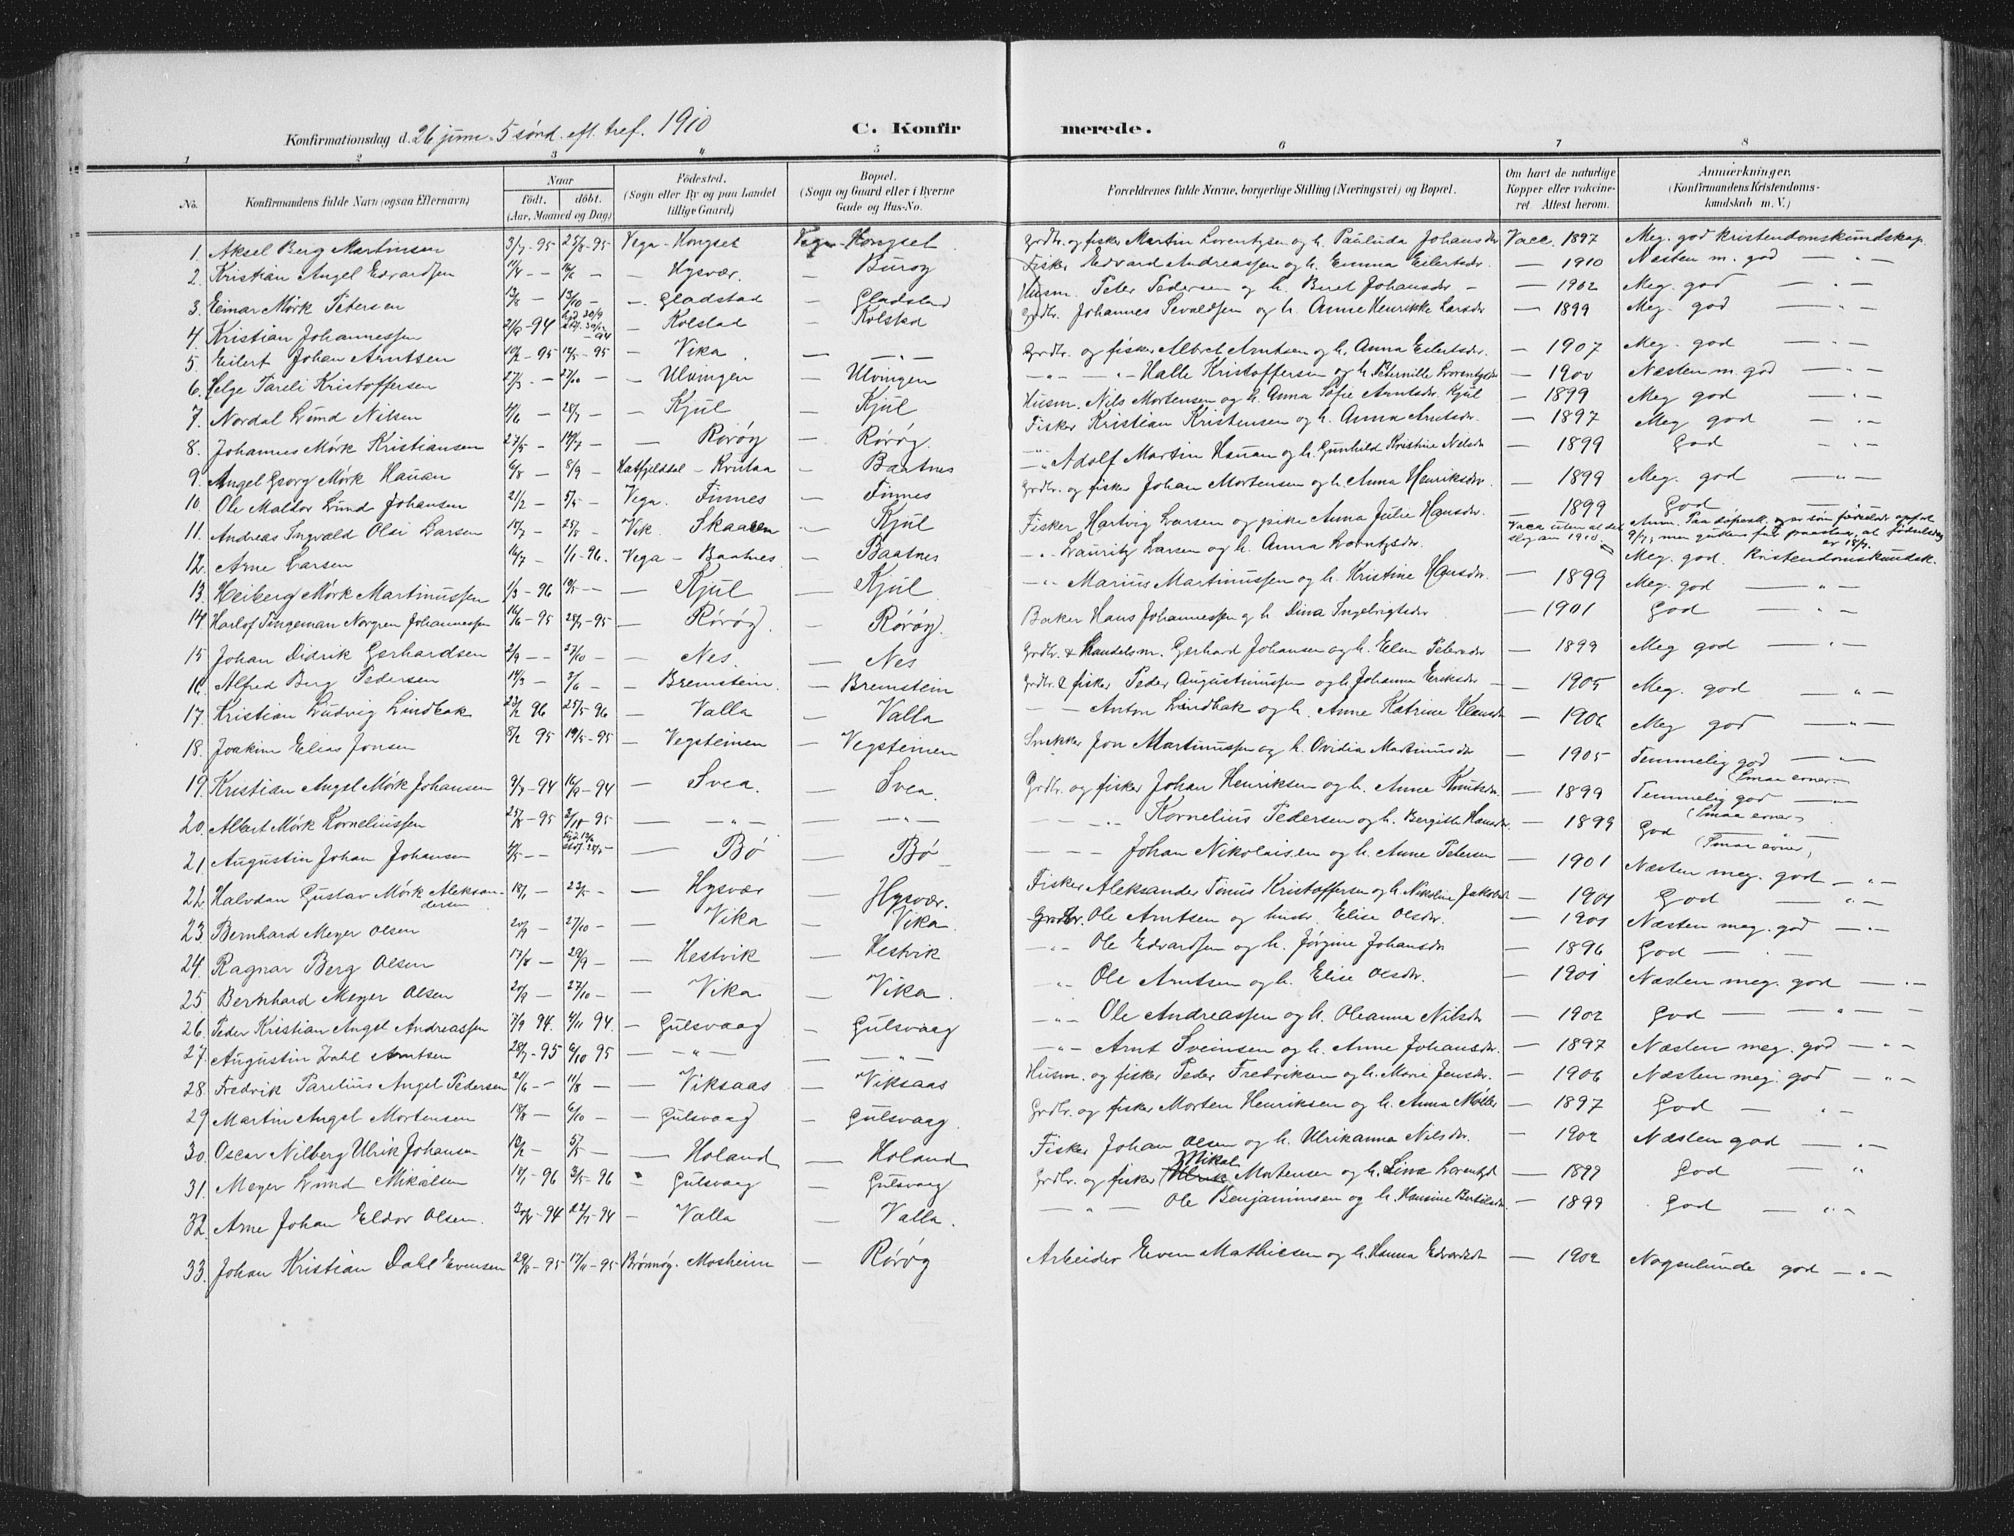 Konfirmationsdag d. 26 juni 5 sönd. eft. tref. 1910 C. Konfirmerede.
1 2 3 4 5 6 7 8
No. Konfirmandens fulde Navn (ogsaa Efternavn) Naar födt. döbt. (Aar, Maaned og Dag) Födested. (Sogn eller By og paa Landet tillige Gaard) Bopæl. (Sogn og Gaard eller i Byerne Gade og Hus-No. Forældrenes fulde Navne, borgerlige Stilling (Næringsvei) og Bopæl. Om havt de naturlige Kopper eller vakcineret. Attest herom. Anmærkninger. (Konfirmandens Kristendomskundskab m. V.)
1. Aksel Berg Martinsen 3/7-95 25/8-95 Vega - Hongset Vega - Hongset Grdbr. og fisker Martin Lorentzen og h. Pauluda Johansdr Vacc. 1897 Meg. god kristendomskundskap
2. Kristian Angel Edvardsen — Hysvær — Buroy Fisker Edvard Andreassen og h. Emma Eilertsdr. — 1910 Næsten m. god — " —
3. Einar Mörk Petersen — Gladstad — Gladstad Husm. Peter Pedersen og h. Beret Johansdr — 1902 Meg. god — " —
4. Kristian Johannessen — Kolstad — Kolstad Grdbr. Johannes Sevaldsen og h. Anne Henrikke Larsdr — 1899 Meg. god — " —
5. Eilert Johan Arntsen — Vika — " — Grdbr. og fisker Albert Arntsen og h. Anna Eilertsdr. — 1907 Meg. god — " —
6. Helge Pareli Kristoffersen 27/3 — 27/10 — — Ulvingen — Ulvingen — " — Halle Kristoffersen og h. Pernille Lorentzdr — 1900 Næsten m. god — " —
7. Nordal Lund Nilsen — 28/7 — — Kjul — Kjul Husm. Nils Mortensen og h. Anna Sofie Arntsdr. Kjul — 1899 Meg god — " —
8. Johannes Mörk Kristiansen 27/5 — — Röröy — Röröy. Fisker Kristian Kristensen og h. Anna Arntsdr. — 1897 Meg god — " —
9. Angel Georg Mörk Hauan 6/8 — 8/9 — Hatfjelddal - Krutaa — Baatnes — " — Adolf Martin Hauan og h. Gunhild Kristine Nilsdr — 1899 God — " —
10. Ole Maltor Lund Johansen 21/2 — 5/5 — Vega. Finnes — Finnes Grdbr. og fisker Johan Mortensen og h. Anna Henriksdr. — 1899 Meg. god — " —
11. Andreas Ingvald Olai Larsen — 25/8 — Vik. Skaaren — Kjul Fisker Hartvig Larsen og pike Anna Julie Hansdr. — 1899 God — " —
12. Arne Larsen 16/7 — 1/1-96. Vega - Baatnes — Baatnes — " — Lauritz Larsen og h. Anna Lorentzdr. Vacc. uten at det slog an 1910. Meg. god. Kristendomskundsk.
13. Heiberg Mörk Martinussen 1/3-96 — Kjul — Kjul. — " — Marius Martinussen og h. Kristine Hansdr. — 1899 Meg. god — " —
14. Harlof Tingeman Norgren Johannessen 16/6-95 28/7-95 — Röröy. — Röröy. Baker Hans Johannessen og h. Dina Ingebrigtsdr — 1901 God — " —
15. Johan Didrik Gerhardsen 2/9 — 27/10 — — Nes. — Nes Grdbr. & Handelsm. Gerhard Johansen og h. Elen Petersdr — 1899 Meg god — " —
16. Alfred Berg Pedersen 19/3 — 3/6 — — Bremstein. — Bremstein Grdbr. & fisker Peder Augustinussen og h. Johanna Eriksdr — 1905 Meg. god — " —
17. Kristian Ludvig Lindbak 96 25/5 96 — Valla — Valla — — Anton Lindbak og h. Anne Katrine — 1906 Meg god — " —
18. Joakim Elias Jonsen 8/2 95 19/5-95 — Vegsteinen — Vegsteinen Snekker Jon Martinussen og h. Ovidia Martinusdr — 1905 Temmelig god — " — (Smaa evner)
19. Kristian Angel Mörk Johansen 9/8-94 16/9-94 — Svea. — Svea. Grdbr. og fisker Johan Henriksen og h. Anne Knutsdr. — 1899 Temmelig god — " — (Smaa evner)
20. Albert Mörk Korneliussen 25/8-95 3/10-95 — " — — " — — " — Kornelius Pedersen og h. Bergithe Hansdr — 1899 God — " — (Smaa evner)
21. Augustin Johan Johansen — Bö — Bö — — Johan Nikolaisen og h. Anne Petersen — 1901 Næsten meg. god — " —
22. Halvdan Gustav Mörk Aleksandersen 18/1 — — Hysvær — Hysvær. Fisker Aleksander Tinus Kristoffersen og h. Nikoline Jakobsdr — 1901 God — " —
23. Bernhard Meyer Olsen 20/9 — 27/10 — — Vika — Vika. Grdbr. Ole Arntsen og hustr. Elise Olsdr. — 1901 Næsten meg. god — " —
24. Ragnar Berg Olsen 17/8 — 29/9 — — Hestvik — Hestvik — " — Ole Edvardsen og h. Jörgine Johansdr — 1896 God — " —
25. Bernhard Meyer Olsen 20/9 — 27/10 — — Vika — Vika. — " — Ole Arntsen og h. Elise Olsdr. — 1901 Næsten meg. god — " —
26. Peder Kristian Angel Andreassen 7/9 94. 4/11 94. — Gulsvaag — Gulsvaag — " — Ole Andreassen og h. Oleanna Nilsdr — 1902 God — " —
27. Augustin Dahl Arntsen 28/7-95 6/10 95 — " — — " — — " — Arnt Sveinsen og h. Anne Johansdr. — 1897 Næsten meg. god — " —
28. Fredrik Parelius Angel Pedersen 21/6 — 11/8 — — Viksaas — Viksaas Husm. og fisker Peder Fredriksen og h. Marie Jensdr. — 1906 Næsten meg. god — " —
29. Martin Angel Mortensen 18/8 — 6/10 — — Gulsvaag — Gulsvaag. Grdbr. og fisker Morten Henriksen og h. Anna Möller — 1897 God — " —
30. Oscar Nilberg Ulrik Johansen — 5/5 — — Holand — Holand Fisker Johan Olsen og h. Ulrikanna Nilsdr. — 1902 Næsten god — " —
31. Meyer Lund Mikalsen 96 3/5-96 — Gulsvaag — Gulsvaag Grdbr. og fisker Mikal Mortensen og h. Lina Lorentzd — 1899 God — "
32. Arne Johan Eldor Olsen. 94 22/7-94 — Valla — Valla. — " — Ole Benjaminsen og h. Hansine Bertelsdr — 1899 God — " —
33. Johan Kristian Dahl Evensen 29/8-95 17/11-95 Brönnöy. Mosheim — Röröy Arbeider Even Mathiesen og h. Hanna Edvardsdt — 1902 Nogenlunde god — " —